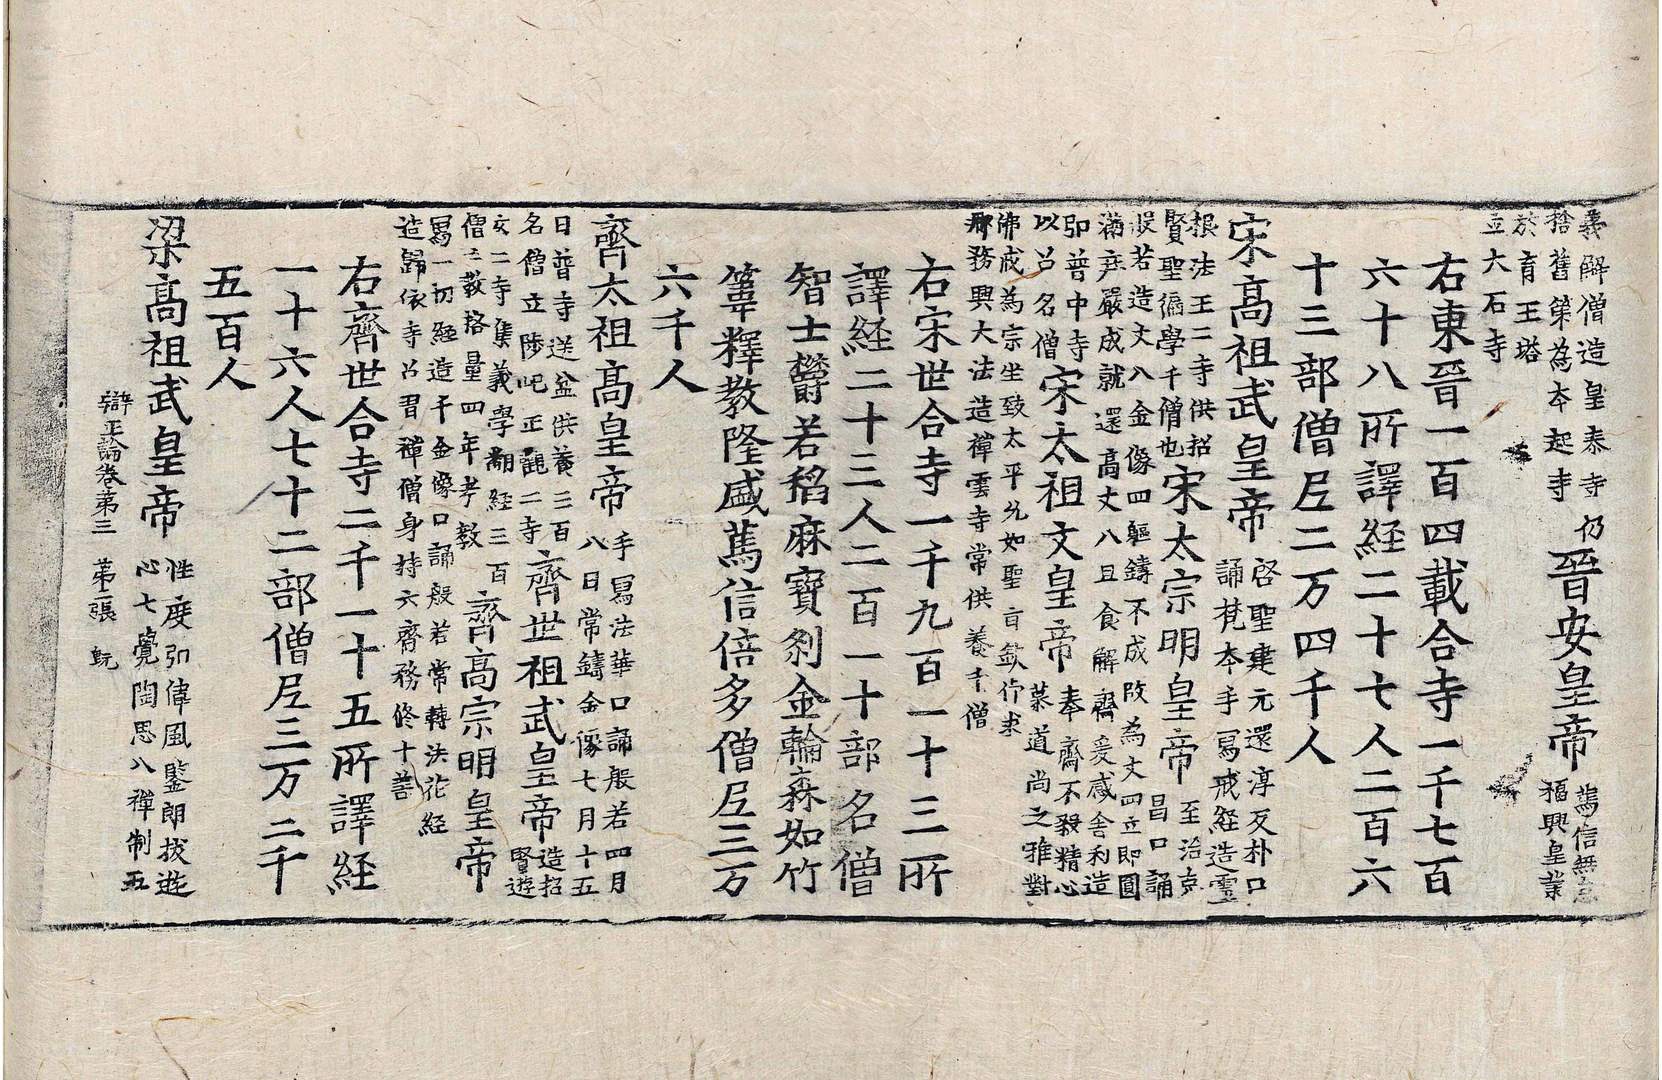 義解僧造皇泰寺仍
捨舊第為本起寺
晉安皇帝
篤信無忘
福興皇業
於育王塔
立大石寺
右東晉一百四載合寺一千七百
六十八所譯経二十七人二百六
十三部僧尼二万四千人
宋高祖武皇帝
啓聖建元還淳反朴口
誦梵本手寫戒経造靈
根法王二寺供招
賢聖徧學千僧也
宋太宗明皇帝
至治克
昌口誦
般若造丈八金像四軀鑄不成改為丈四立即圓
滿齊嚴成就還高丈八且食解齋爰感舍利造
即普中寺
以召名僧
宋太祖文皇帝
奉齋不殺精心
慕道尚之雅對
佛戒為宗坐致太平允如聖旨欽仰求
那務興大法造禪雲寺常供養千僧
右宋世合寺一千九百一十三所
譯経二十三人二百一十部名僧
智士欝若稻麻寶剎金輪森如竹
葦釋教隆盛篤信倍多僧尼三万
六千人
齊太祖高皇帝
手寫法華口誦般若四月
八日常鑄金像七月十五
日普寺送盆供養三百
名僧立陟屺正觀二寺
齊世祖武皇帝
造招
賢遊
玄二寺集義學翻経三百
僧三教格量四年考教
齊高宗明皇帝
寫一切経造千金像口誦般若常轉法花経
造歸依寺召習禪僧身持六齋務修十善
右齊世合寺二千一十五所譯経
一十六人七十二部僧尼三万二千
五百人
梁高祖武皇帝
性度弘偉風鑒朗拔遊
心七覺陶思八禪制五
辯正論卷第三 第二張